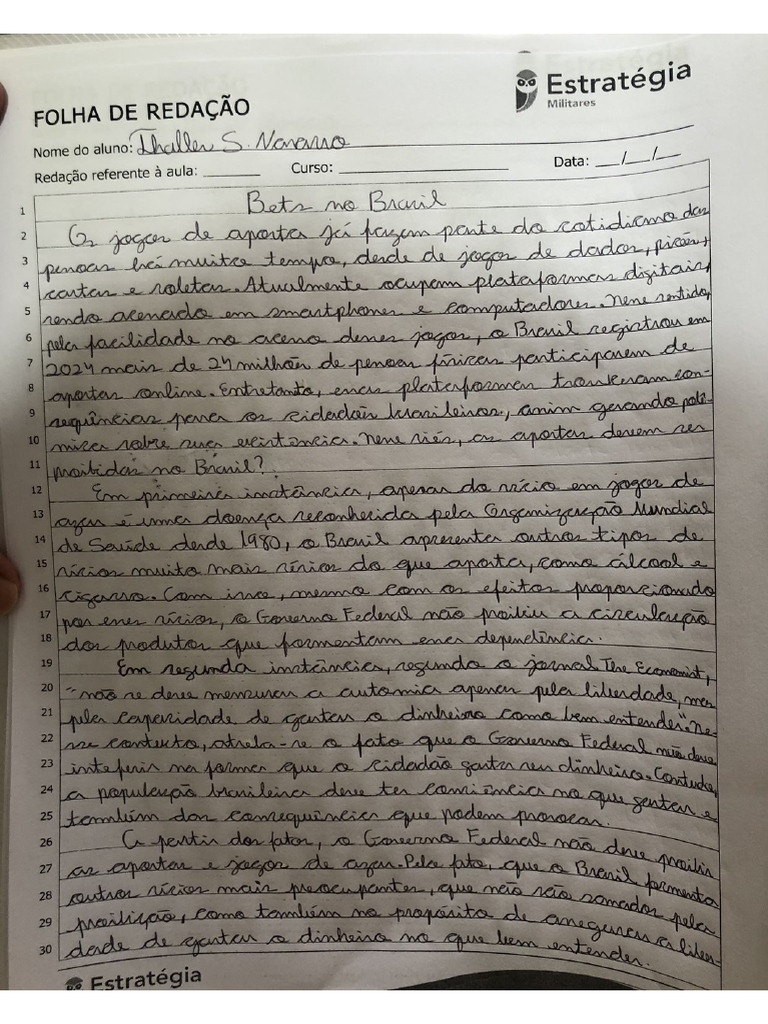 Estratégia
Militares
FOLHA DE REDAÇÃO
Nome do aluno: Thalles S. Navarro
Redação referente à aula: ______ Curso: ______ Data: __/__/__
1 Bets no Brasil
2 Os jogos de aposta já fazem parte do cotidiano das
3 pessoas há muito tempo, desde de jogos de dados, piões,
4 cartas e roletas. Atualmente ocupam plataformas digitais,
5 sendo acessado em smartphones e computadores. Nesse sentido,
6 pela facilidade no acesso desses jogos, o Brasil registrou em
7 2024 mais de 24 milhões de pessoas físicas participarem de
8 apostas online. Entretanto, essas plataformas trouxeram con-
9 sequências para os cidadãos brasileiros, assim gerando polê-
10 mica sobre sua existência. Nesse viés, as apostas devem ser
11 proibidas no Brasil?
12 Em primeira instância, apesar do vício em jogos de
13 azar é uma doença reconhecida pela Organização Mundial
14 de Saúde desde 1980, o Brasil apresenta outros tipos de
15 vícios muito mais sérios do que aposta, como álcool e
16 cigarro. Com isso, mesmo com os efeitos proporcionado
17 por esses vícios, o Governo Federal não proibiu a circulação
18 dos produtos que formentam essa dependência.
19 Em segunda instância, segundo o jornal The Economist,
20 "não se deve mensurar a automia apenas pela liberdade, mas
21 pela capacidade de gastar o dinheiro como bem entender." Ne-
22 sse contexto, atrela-se o fato que o Governo Federal não deve
23 inteferir na forma que o cidadão gasta seu dinheiro. Contudo,
24 a população brasileira deve ter consciência no que gastar e
25 também das consequências que podem provocar.
26 A partir dos fatos, o Governo Federal não deve proibir
27 as apostas e jogos de azar. Pelo fato, que o Brasil formenta
28 outros vícios mais preocupantes, que não são somados pela
29 proibição, como também no propósito de assegurar a liber-
30 dade de gastar o dinheiro no que bem entender.
Estratégia